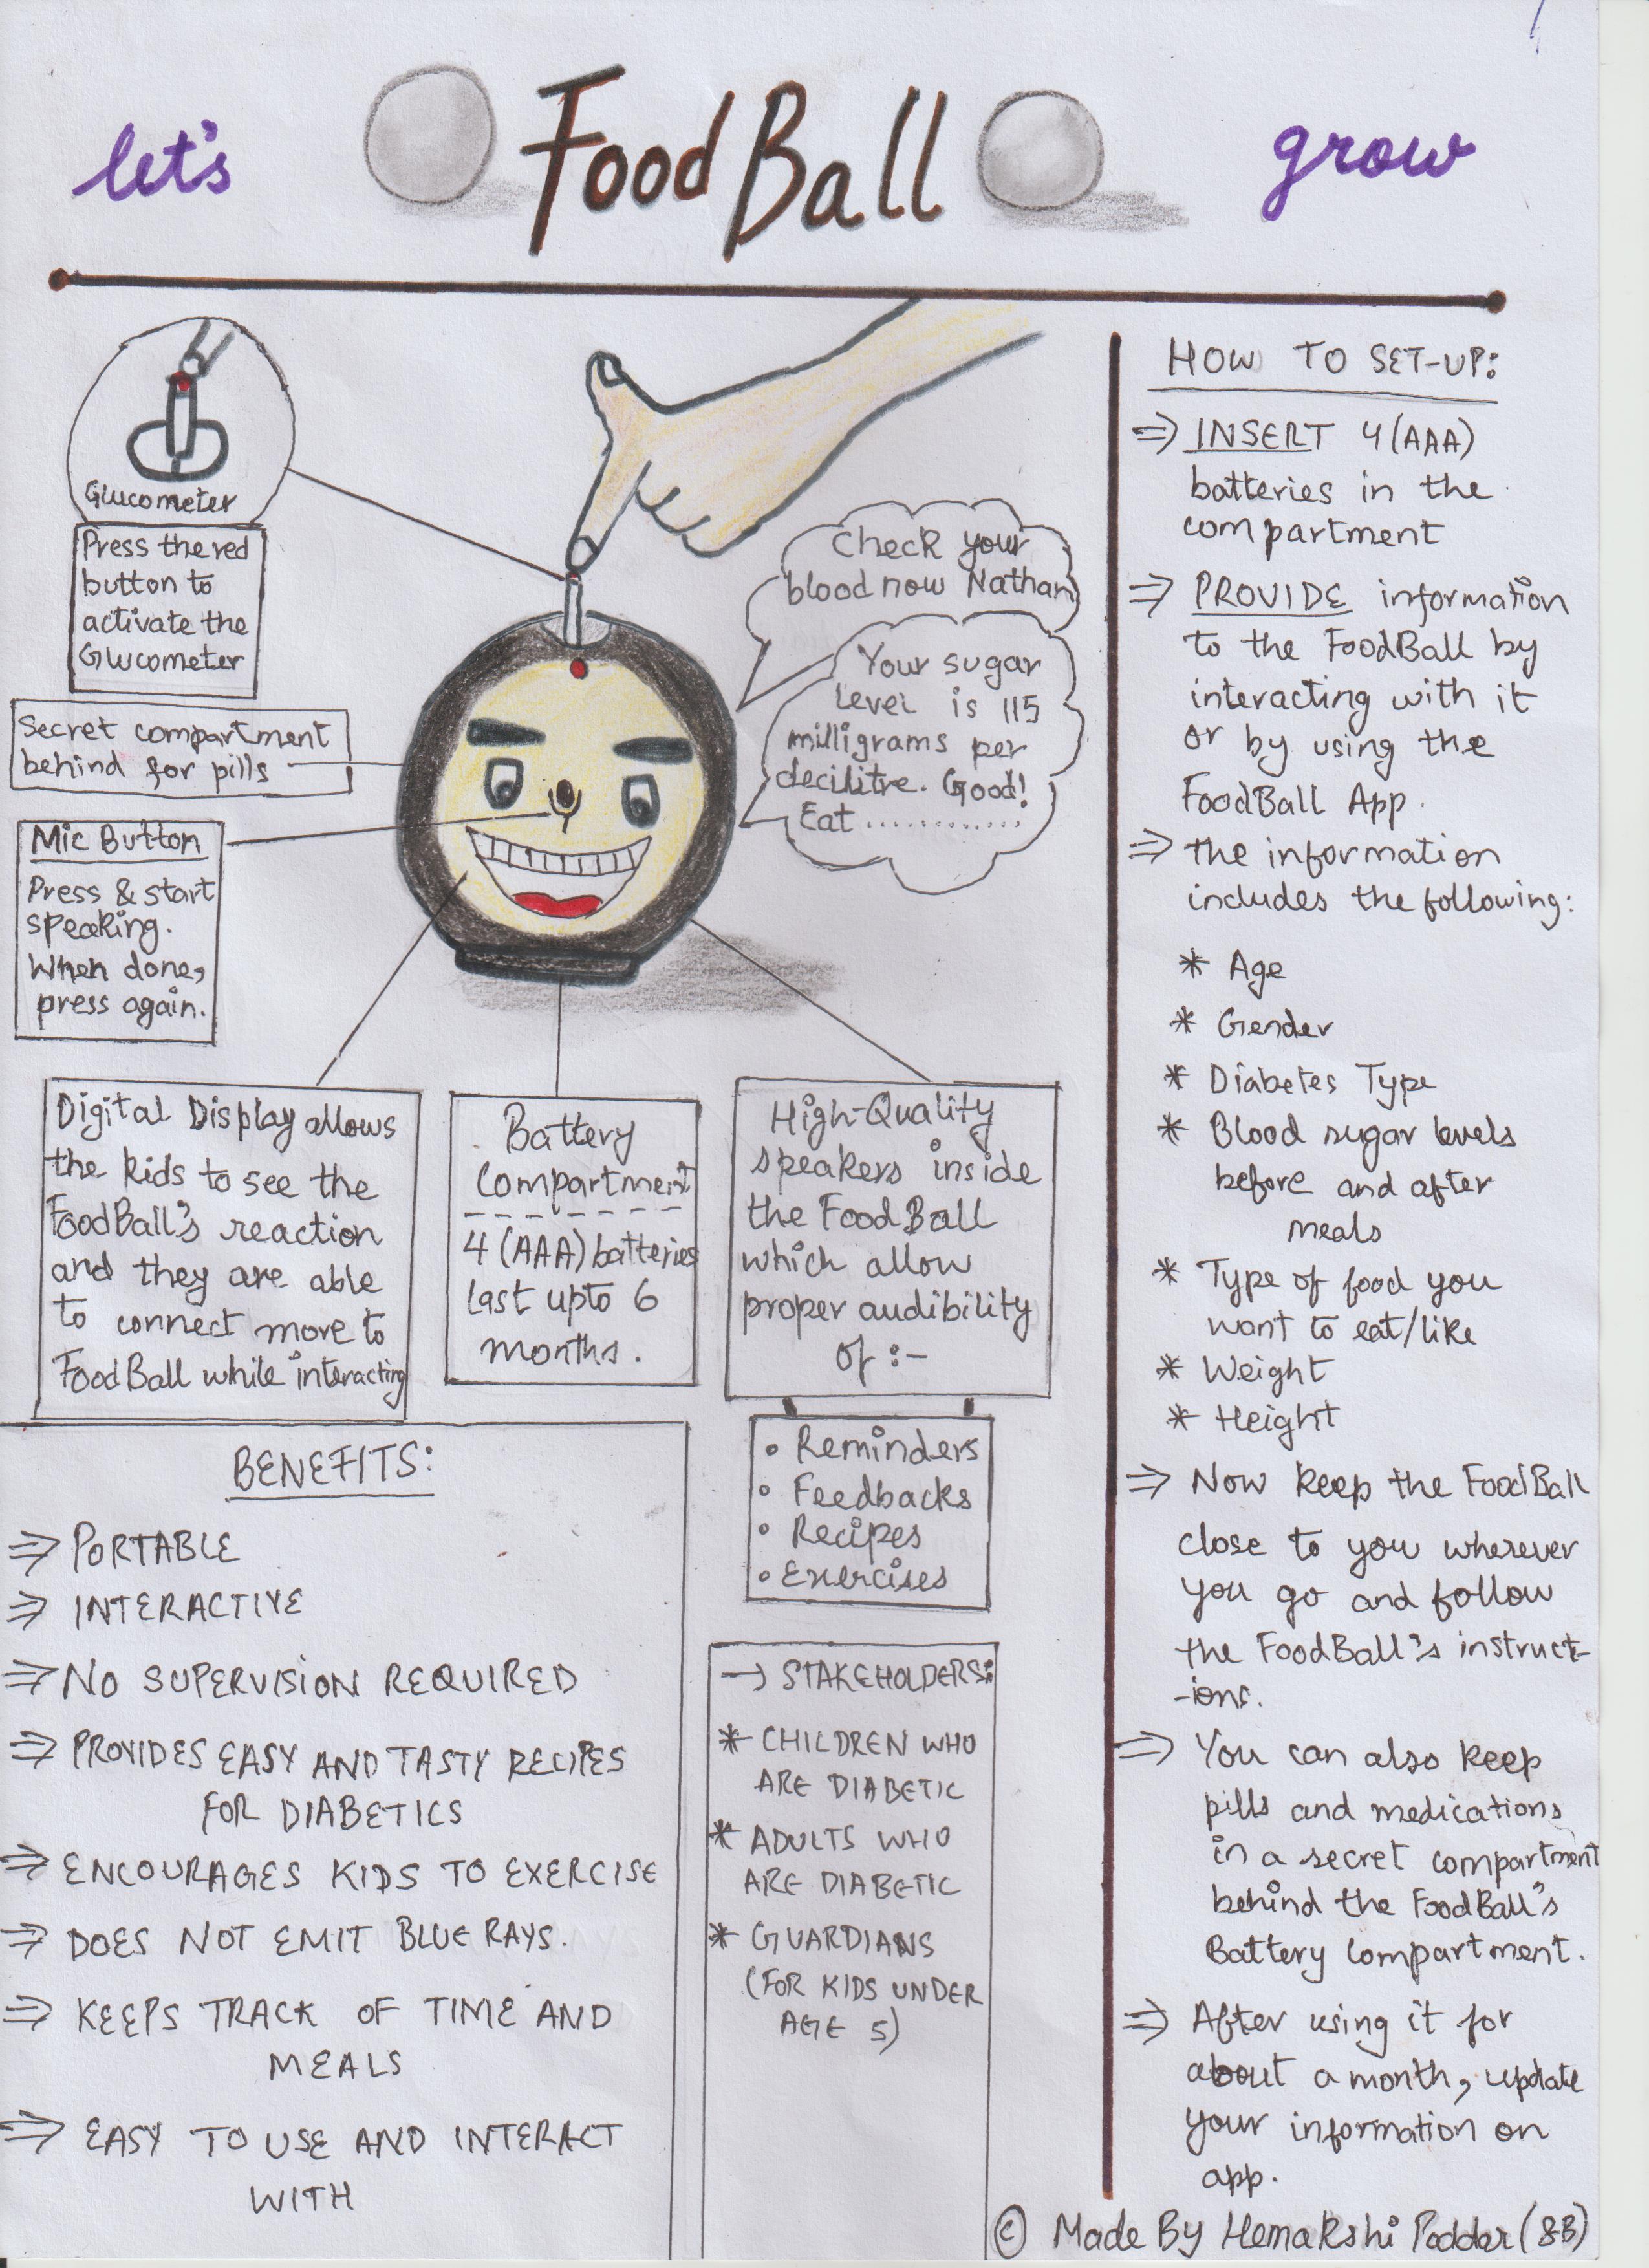 let's
FoodBall
grow
Glucometer
Press the red
button to
activate the
Glucometer
Secret compartment
behind for pills
Mic Button
Press & start
speaking.
When done,
press again.
Check your
blood now Nathan
Your sugar
level is 115
milligrams per
decilitre. Good!
Eat .............
Digital Display allows
the kids to see the
FoodBall's reaction
and they are able
to connect more to
FoodBall while interacting
Battery
Compartment
4 (AAA) batteries
last upto 6
months.
High-Quality
speakers inside
the FoodBall
which allow
proper audibility
of :-
• Reminders
• Feedbacks
• Recipes
• Exercises
BENEFITS:
⇒ PORTABLE
⇒ INTERACTIVE
⇒ NO SUPERVISION REQUIRED
⇒ PROVIDES EASY AND TASTY RECIPES
FOR DIABETICS
⇒ ENCOURAGES KIDS TO EXERCISE
⇒ DOES NOT EMIT BLUE RAYS.
⇒ KEEPS TRACK OF TIME AND
MEALS
⇒ EASY TO USE AND INTERACT
WITH
→ STAKEHOLDERS:
* CHILDREN WHO
ARE DIABETIC
* ADULTS WHO
ARE DIABETIC
* GUARDIANS
(FOR KIDS UNDER
AGE 5)
HOW TO SET-UP:
⇒ INSERT 4 (AAA)
batteries in the
compartment
⇒ PROVIDE information
to the FoodBall by
interacting with it
or by using the
FoodBall App.
⇒ the information
includes the following:
* Age
* Gender
* Diabetes Type
* Blood sugar levels
before and after
meals
* Type of food you
want to eat/like
* Weight
* Height
⇒ Now keep the FoodBall
close to you wherever
you go and follow
the FoodBall's instruct-
-ions.
⇒ You can also keep
pills and medications
in a secret compartment
behind the FoodBall's
Battery Compartment.
⇒ After using it for
about a month, update
your information on
app.
© Made By Hemakshi Poddar (8B)